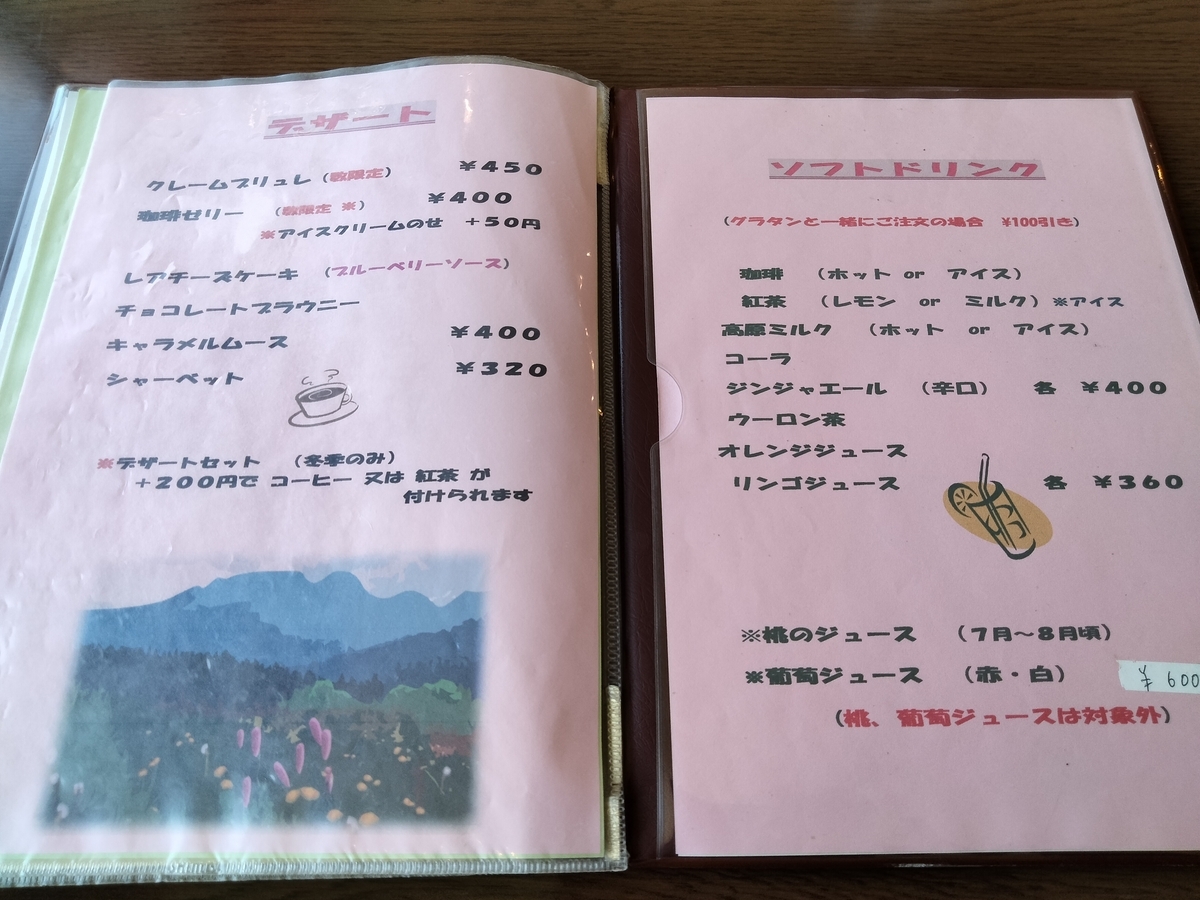 デザート
クレームブリュレ（数限定） ￥450
珈琲ゼリー （数限定 ※） ￥400
※アイスクリームのせ ＋50円
レアチーズケーキ （ブルーベリーソース）
チョコレートブラウニー
キャラメルムース ￥400
シャーベット ￥320
※デザートセット （冬季のみ）
＋200円で コーヒー 又は 紅茶 が
付けられます
ソフトドリンク
（グラタンと一緒にご注文の場合 ¥100引き）
珈琲 （ホット or アイス）
紅茶 （レモン or ミルク）※アイス
高原ミルク （ホット or アイス）
コーラ
ジンジャエール （辛口） 各 ￥400
ウーロン茶
オレンジジュース
リンゴジュース 各 ￥360
※桃のジュース （7月～8月頃）
※葡萄ジュース （赤・白） ￥600
（桃、葡萄ジュースは対象外）